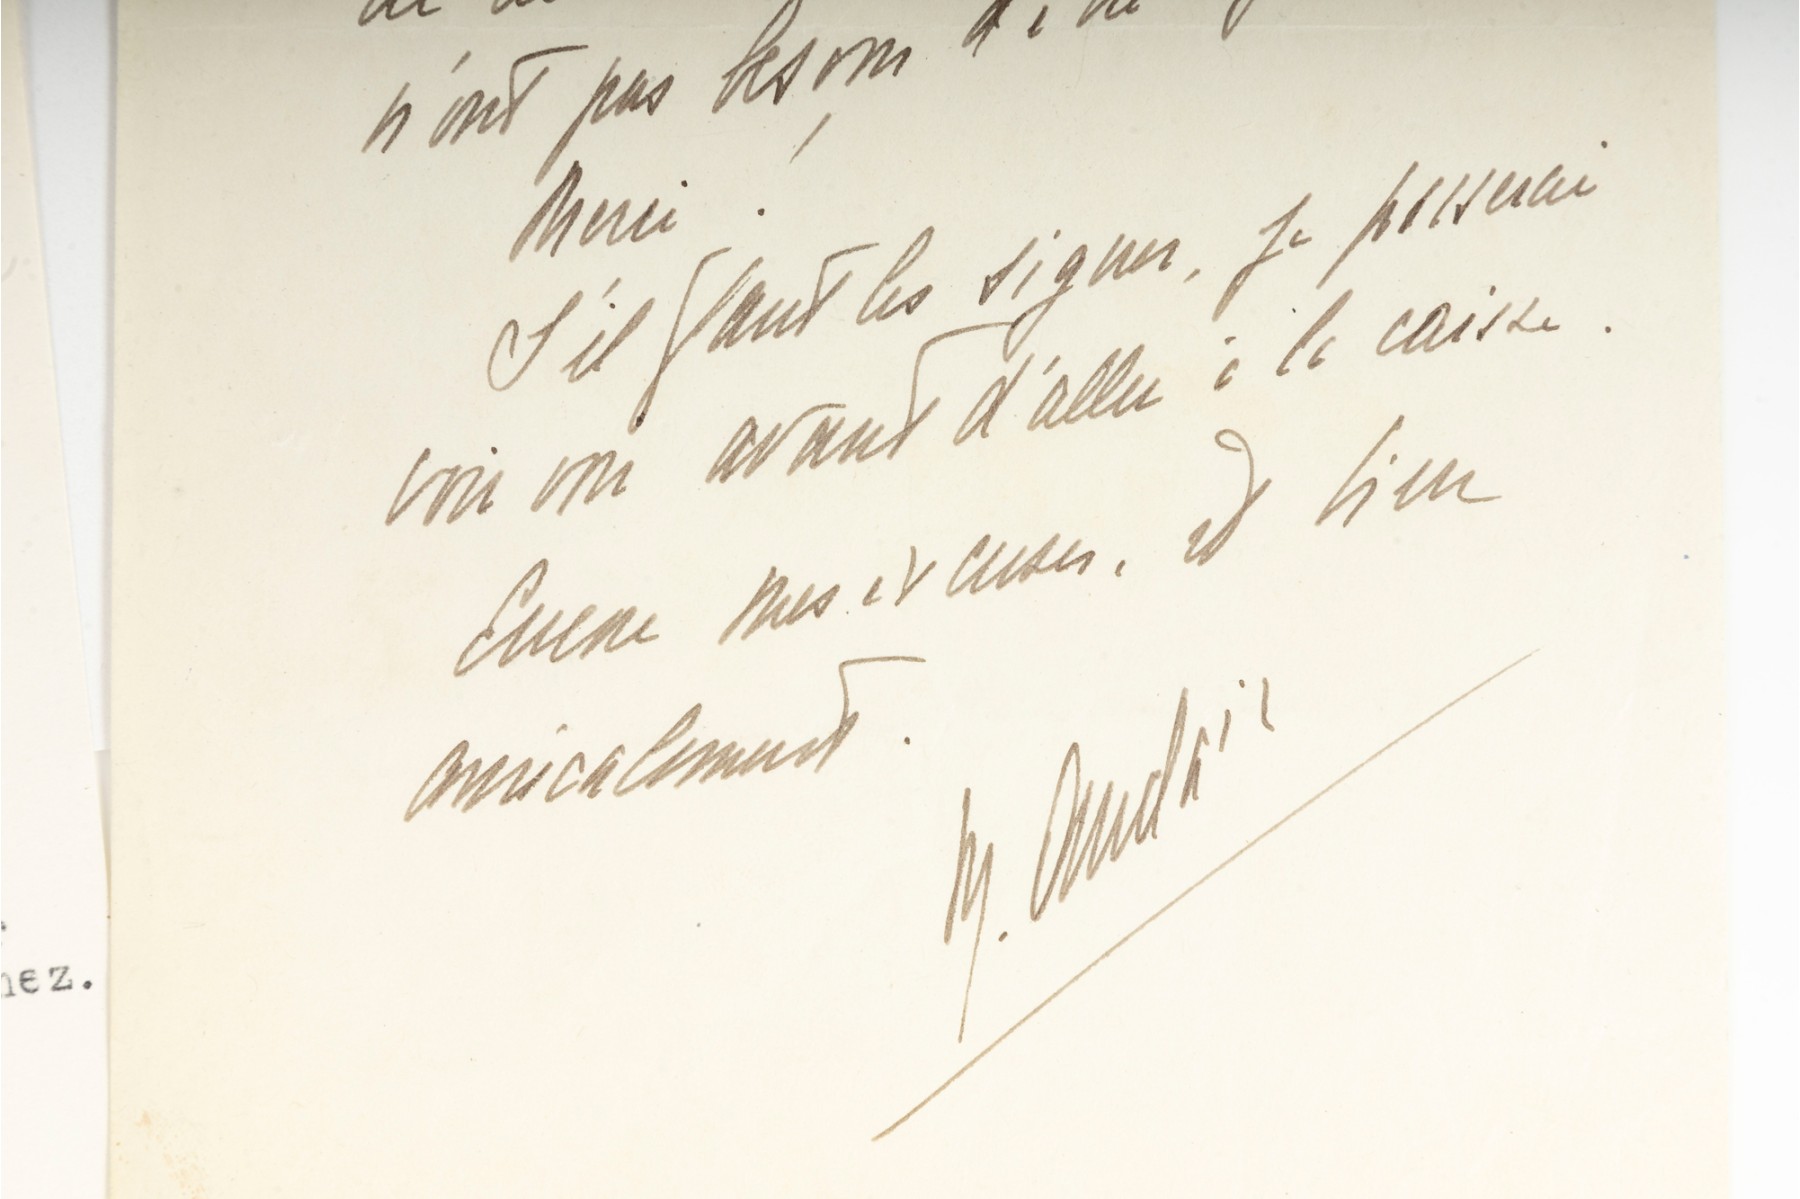 n'ont pas besoin
Merci !
S'il faut les signer, je passerai
vous voir avant d'aller à la caisse.
Encore mes excuses, et bien
amicalement.
M.
nez.